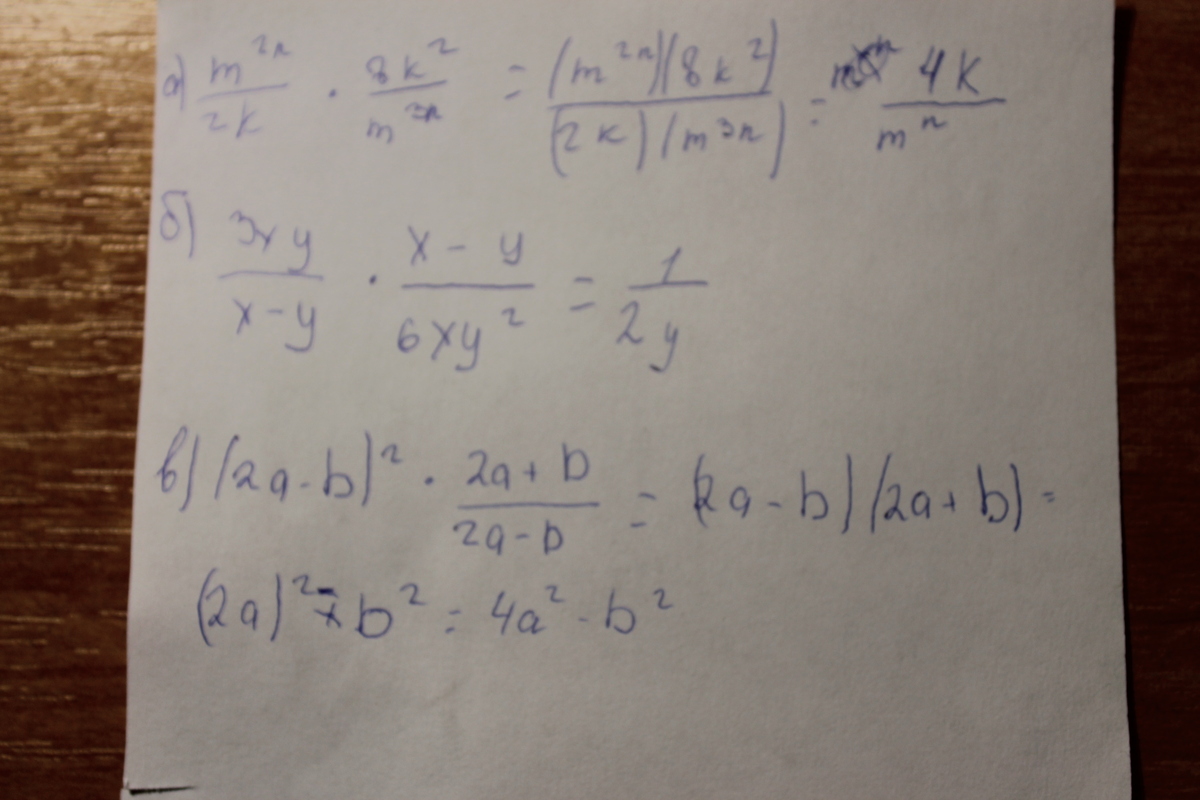 а) m²ⁿ/2k · 8k²/m³ⁿ = (m²ⁿ)(8k²)/(2k)(m³ⁿ) = 4k/mⁿ
б) 3xy/x-y · x-y/6xy² = 1/2y
в) (2a-b)² · 2a+b/2a-b = (2a-b)(2a+b) =
(2a)² - b² = 4a² - b²